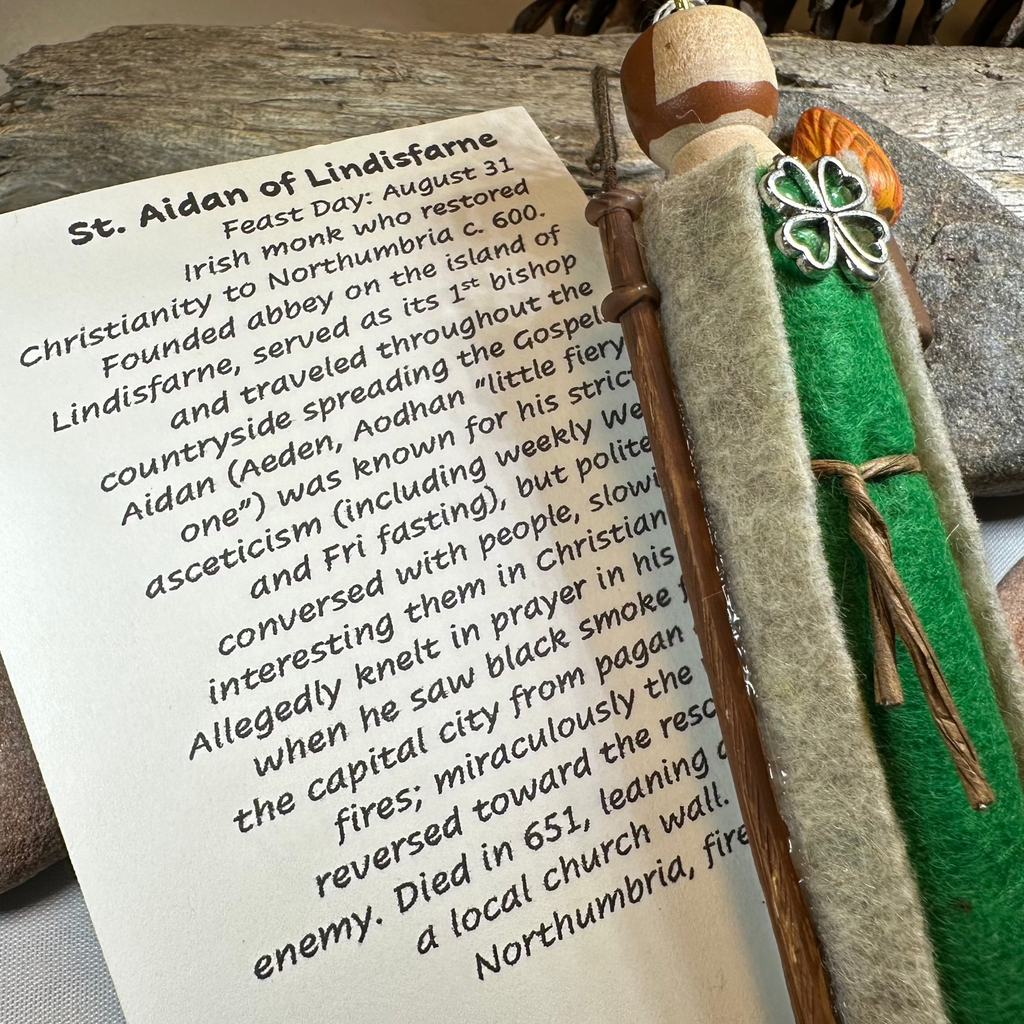 St. Aidan of Lindisfarne
Feast Day: August 31
Irish monk who restored
Christianity to Northumbria c. 600.
Founded abbey on the island of
Lindisfarne, served as its 1st bishop
and traveled throughout the
countryside spreading the Gospel.
Aidan (Aeden, Aodhan "little fiery
one") was known for his strict
asceticism (including weekly We
and Fri fasting), but polite
conversed with people, slowl
interesting them in Christian
Allegedly knelt in prayer in his
when he saw black smoke
the capital city from pagan
fires; miraculously the
reversed toward the
enemy. Died in 651, leaning
a local church wall.
Northumbria, fire